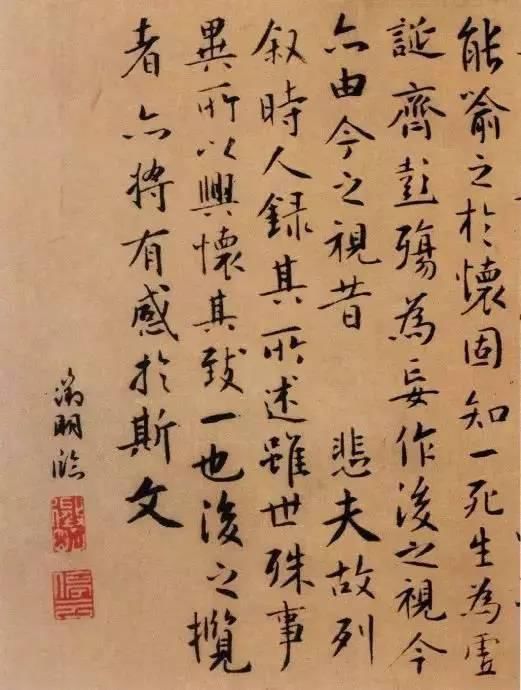 能喻之於懷固知一死生為虛
誕齊彭殤為妄作後之視今
亦由今之視昔 悲夫故列
叙時人錄其所述雖世殊事
異所以興懷其致一也後之攬
者亦將有感於斯文
徵明臨